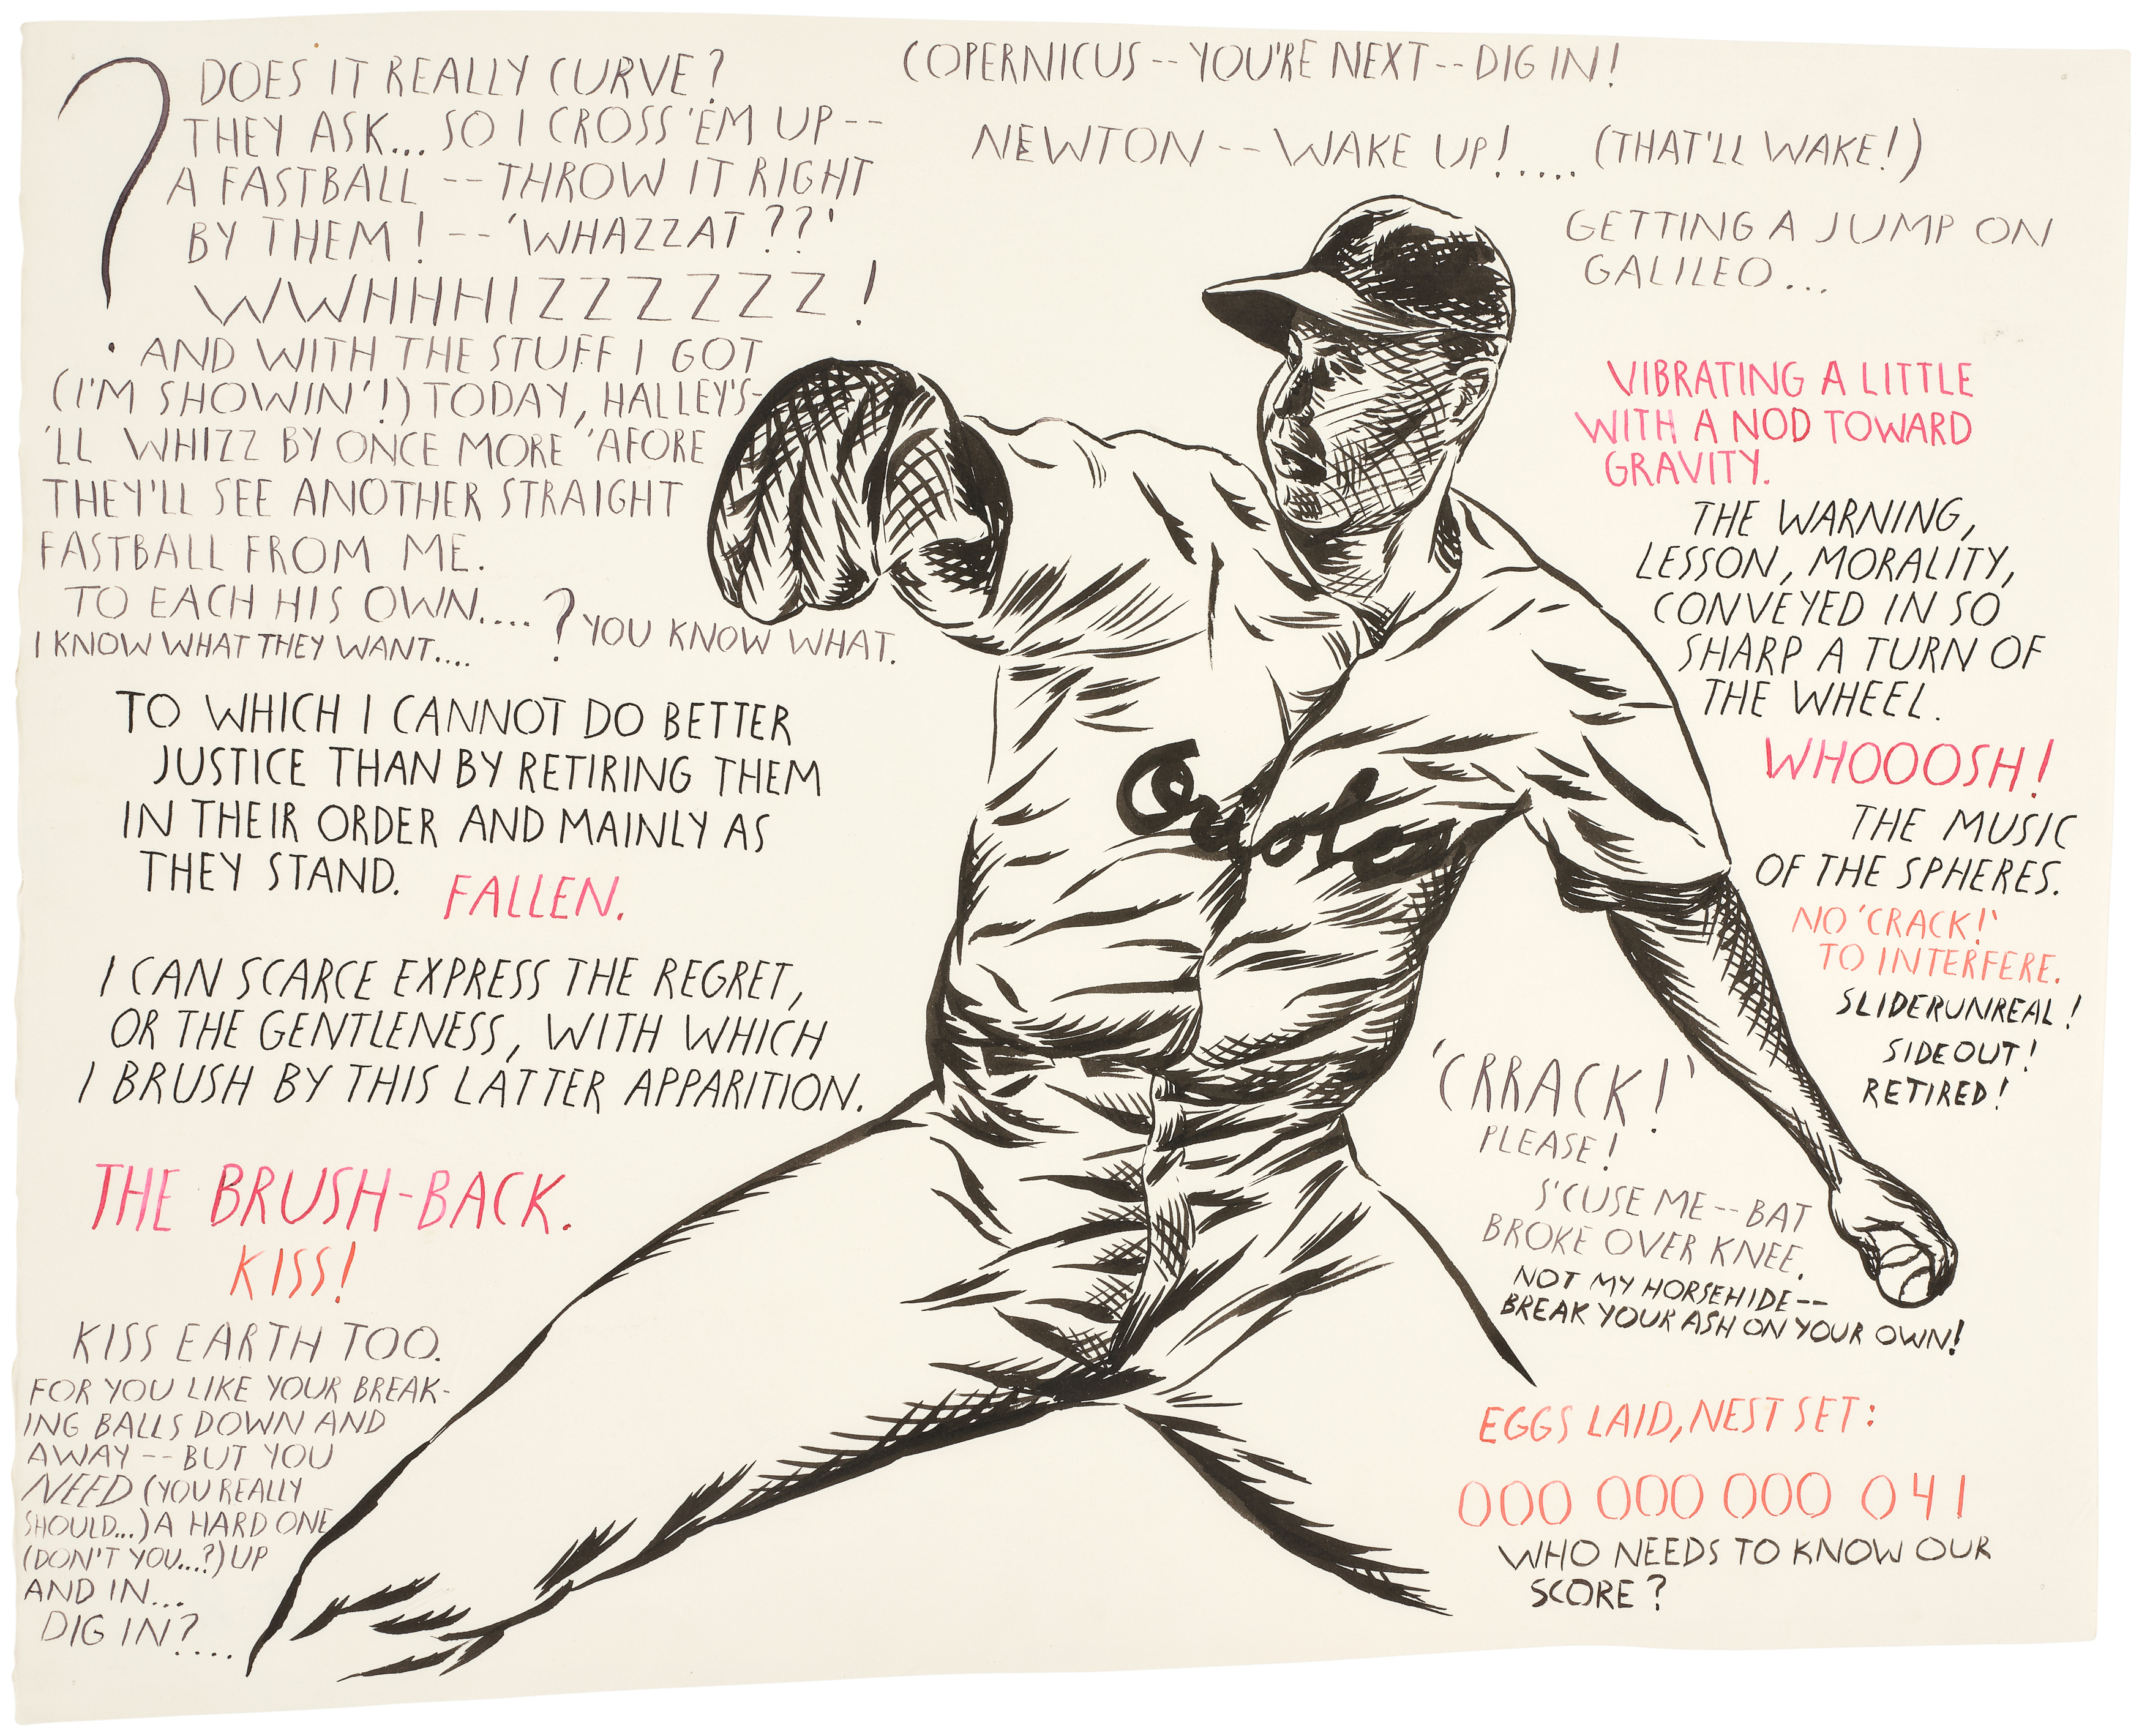 ? DOES IT REALLY CURVE?
THEY ASK... SO I CROSS 'EM UP--
A FASTBALL -- THROW IT RIGHT
BY THEM! -- 'WHAZZAT??'
WWHHHIZZZZZZ!
AND WITH THE STUFF I GOT
(I'M SHOWIN'!) TODAY, HALLEY'S-
'LL WHIZZ BY ONCE MORE 'AFORE
THEY'LL SEE ANOTHER STRAIGHT
FASTBALL FROM ME.
TO EACH HIS OWN....
I KNOW WHAT THEY WANT....
? YOU KNOW WHAT.
TO WHICH I CANNOT DO BETTER
JUSTICE THAN BY RETIRING THEM
IN THEIR ORDER AND MAINLY AS
THEY STAND.
FALLEN.
I CAN SCARCE EXPRESS THE REGRET,
OR THE GENTLENESS, WITH WHICH
I BRUSH BY THIS LATTER APPARITION.
THE BRUSH-BACK.
KISS!
KISS EARTH TOO.
FOR YOU LIKE YOUR BREAK-
ING BALLS DOWN AND
AWAY -- BUT YOU
NEED (YOU REALLY
SHOULD...) A HARD ONE
(DON'T YOU...?) UP
AND IN...
DIG IN?....
COPERNICUS -- YOU'RE NEXT -- DIG IN!
NEWTON -- WAKE UP!..... (THAT'LL WAKE!)
GETTING A JUMP ON
GALILEO...
VIBRATING A LITTLE
WITH A NOD TOWARD
GRAVITY.
THE WARNING,
LESSON, MORALITY,
CONVEYED IN SO
SHARP A TURN OF
THE WHEEL.
WHOOOSH!
THE MUSIC
OF THE SPHERES.
NO 'CRACK!'
TO INTERFERE.
SLIDERUNREAL!
SIDEOUT!
RETIRED!
Orioles
'CRRACK!'
PLEASE!
S'CUSE ME -- BAT
BROKE OVER KNEE.
NOT MY HORSEHIDE--
BREAK YOUR ASH ON YOUR OWN!
EGGS LAID, NEST SET:
000 000 000 041
WHO NEEDS TO KNOW OUR
SCORE?